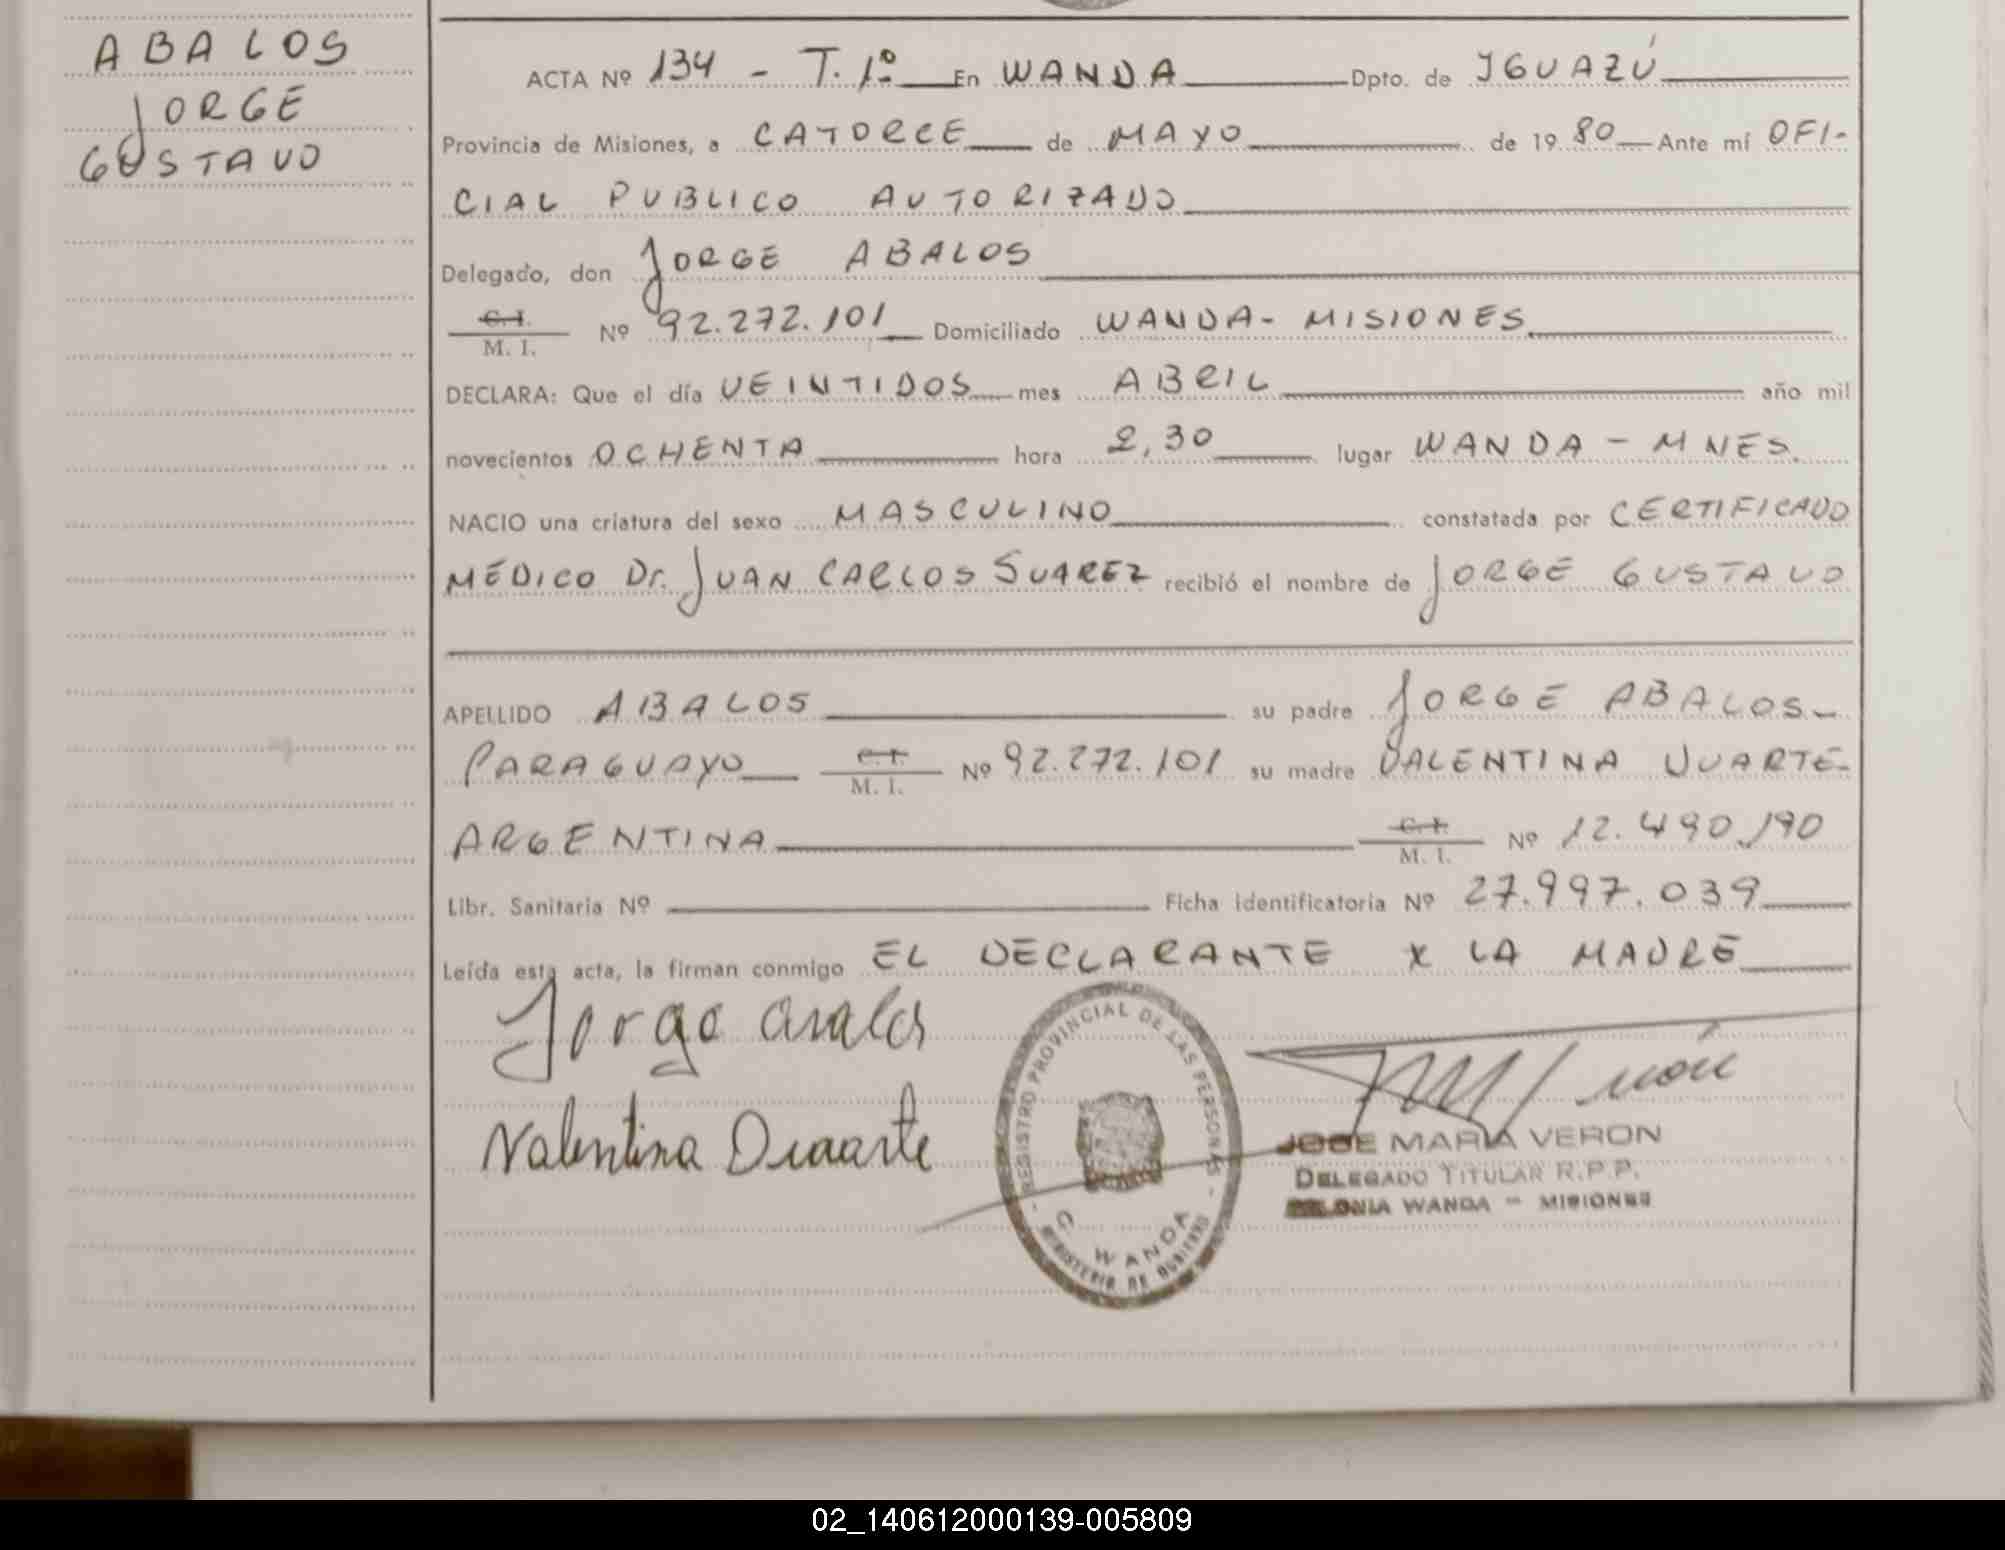 ABALOS
JORGE
GUSTAVO
ACTA Nº 134 - T. 1º En WANDA Dpto. de IGUAZÚ
Provincia de Misiones, a CATORCE de MAYO de 19 80 Ante mí OFI-
CIAL PUBLICO AUTORIZADO
Delegado, don JORGE ABALOS
C. I.
M. I. Nº 92.272.101 Domiciliado WANDA - MISIONES
DECLARA: Que el día VEINTIDOS mes ABRIL año mil
novecientos OCHENTA hora 2,30 lugar WANDA - MNES.
NACIO una criatura del sexo MASCULINO constatada por CERTIFICADO
MEDICO Dr. JUAN CARLOS SUAREZ recibió el nombre de JORGE GUSTAVO
APELLIDO ABALOS su padre JORGE ABALOS-
PARAGUAYO C. I.
M. I. Nº 92.272.101 su madre VALENTINA DUARTE-
ARGENTINA C. I.
M. I. Nº 12.490.190
Libr. Sanitaria Nº Ficha identificatoria Nº 27.997.039
Leída esta acta, la firman conmigo EL DECLARANTE Y LA MADRE
Jorge Avalos
Valentina Duarte
REGISTRO PROVINCIAL DE LAS PERSONAS
C. WANDA
MINISTERIO DE GOBIERNO
JOSE MARIA VERON
DELEGADO TITULAR R.P.P.
COLONIA WANDA - MISIONES
02_140612000139-005809